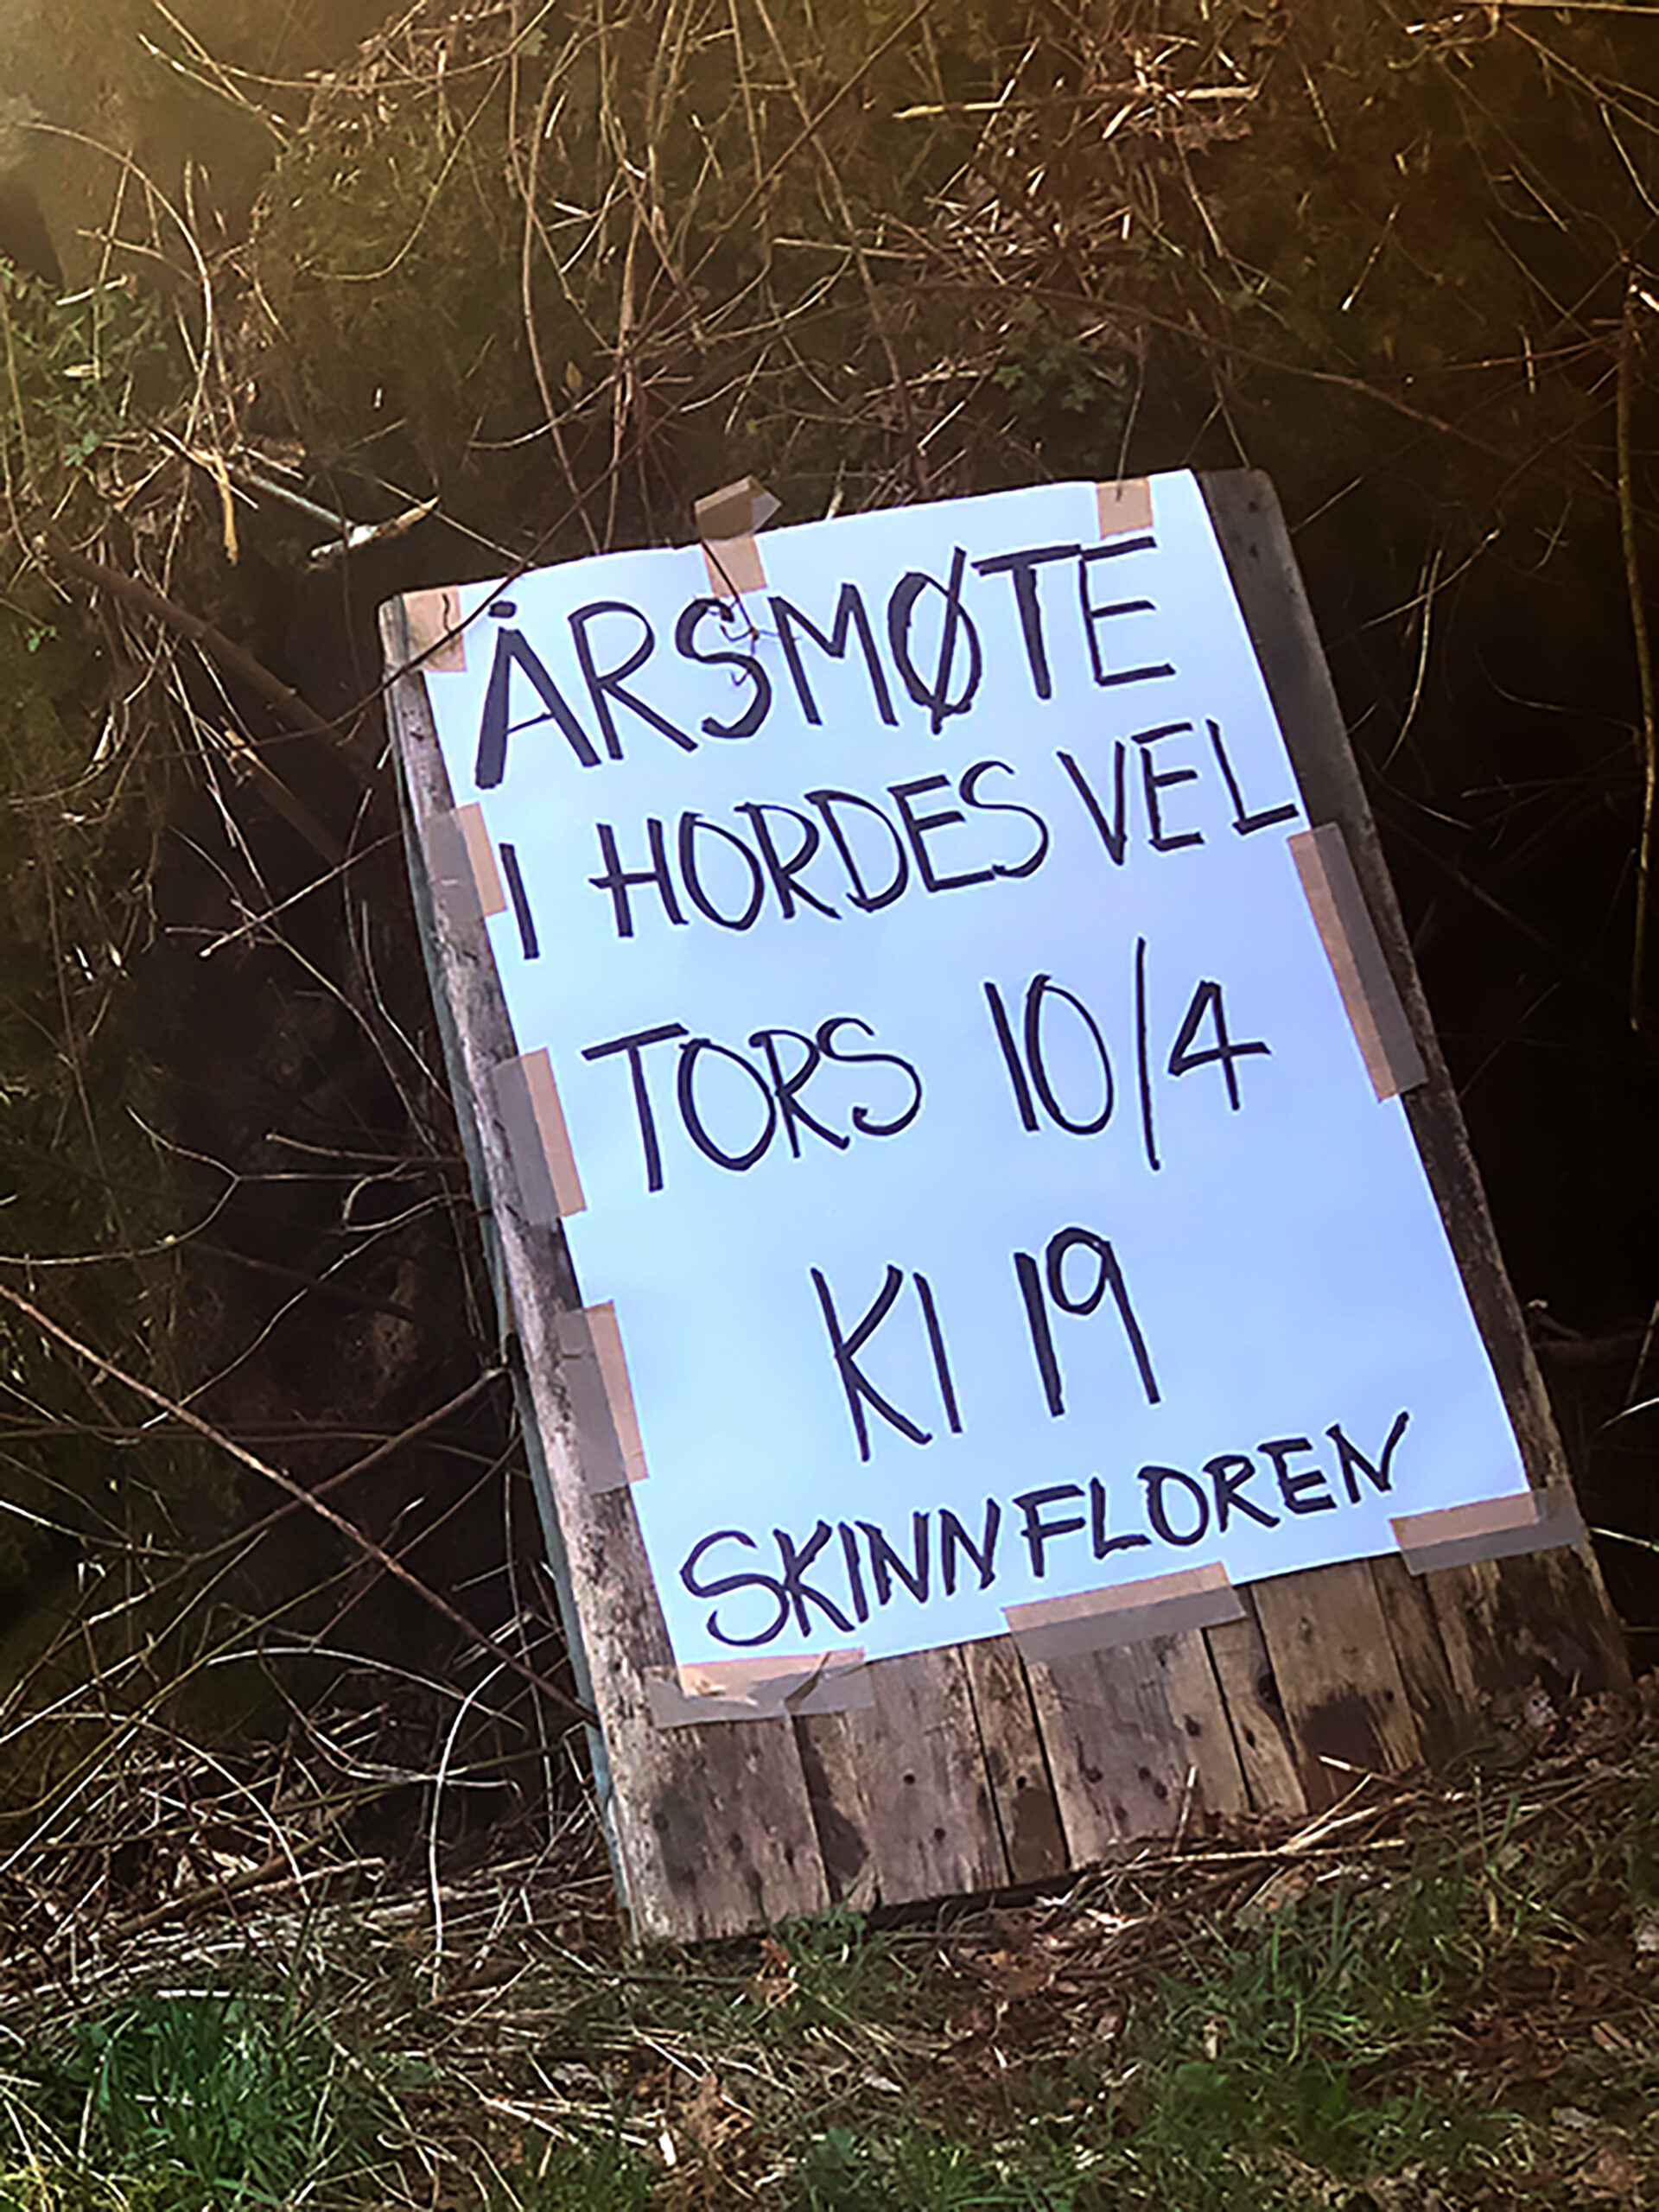 ÅRSMØTE
I HORDES VEL
TORS 10/4
Kl 19
SKINNFLOREN